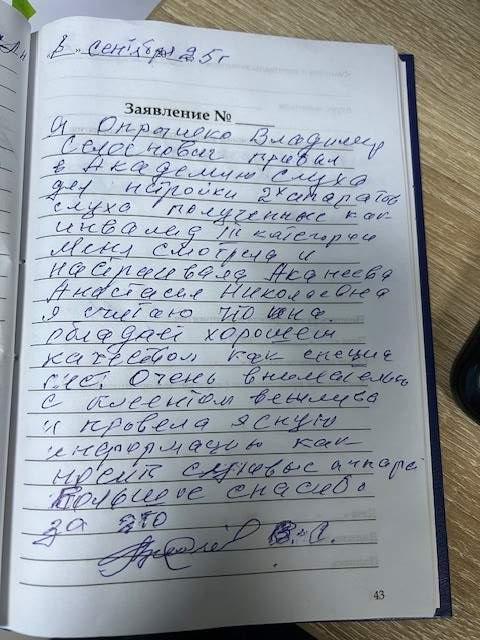 "5" сентября 25г
Заявление №
Я Владимир
прибыл
в Академию слуха
для настройки 2х апаратов
слуха полученные как
инвалид III категории
Меня смотрела и
настраивала Аканеева
Анастасия Николаевна
я считаю что она
обладает хорошем
качеством как специа
лист Очень внимательно
с клиентом вежлива
и провела ясную
информацию как
носить слуховые аппарат
Большое спасибо
за это
В. С.
43